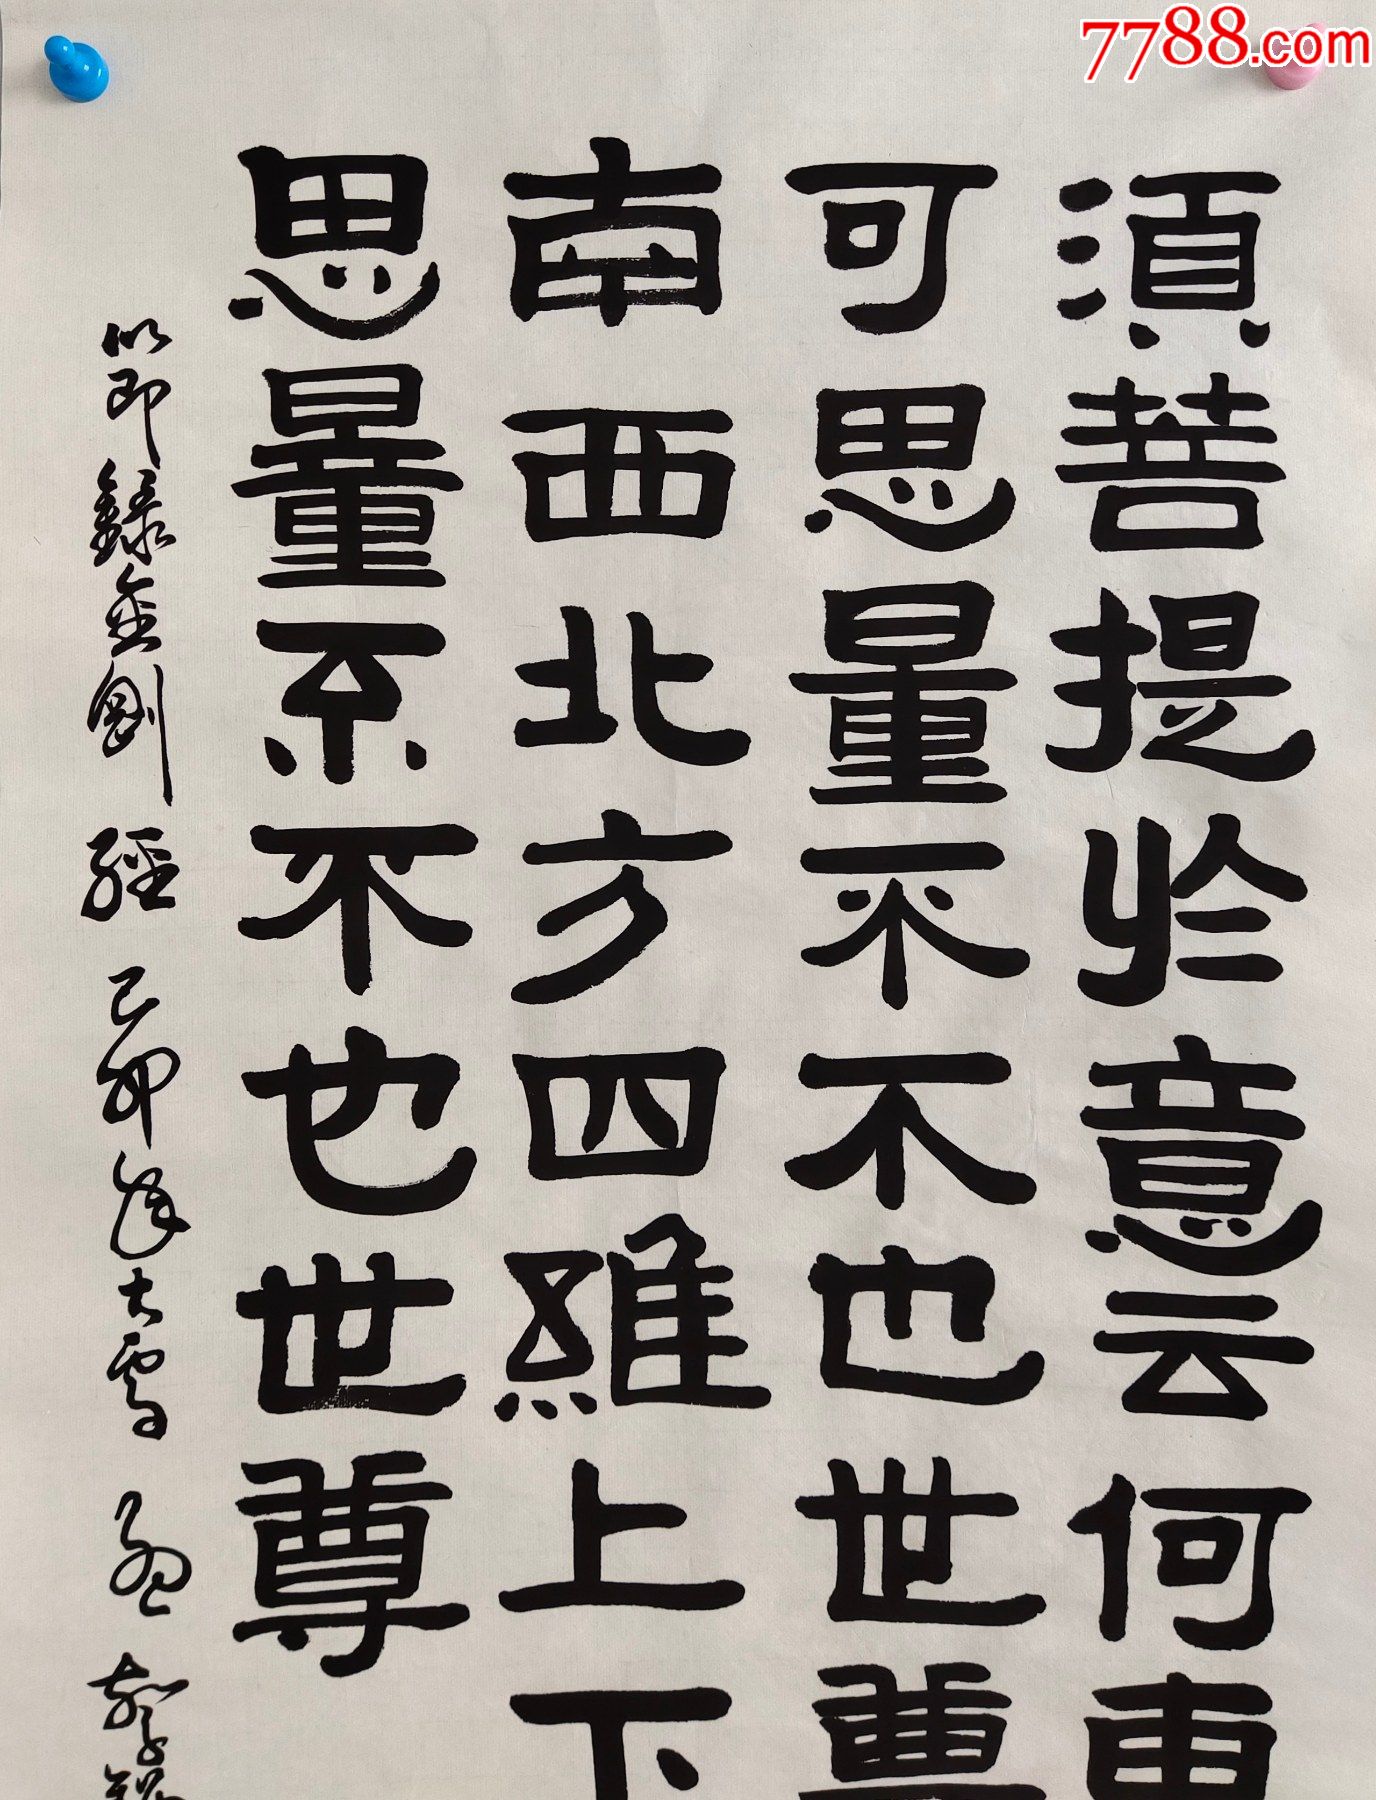 須菩提於意云何東
可思量不不也世尊
南西北方四維上下
思量不不也世尊
節錄金剛經 己卯年大雪
7788.com